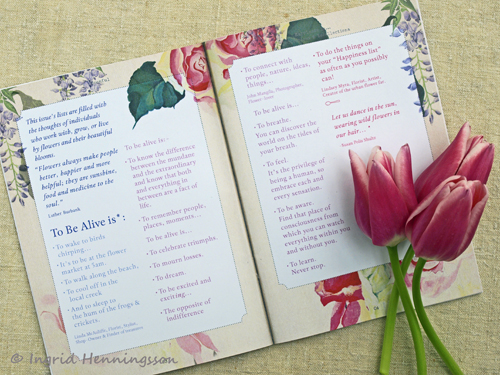 This issue's lists are filled with
the thoughts of individuals
who work with, grow, or live
by flowers and their beautiful
blooms.
"Flowers always make people
better, happier and more
helpful; they are sunshine,
food and medicine to the
soul."
Luther Burbank
To Be Alive is*:
• To wake to birds
chirping.
• It's to be at the flower
market at 5am.
• To walk along the beach,
• To cool off in the
local creek
• And to sleep to
the hum of the frogs &
crickets.
To be alive is..
• To know the difference
between the mundane
and the extraordinary
and know that both
and everything in
between are a fact of
life.
• To remember people,
places, moments...
To be alive is...
• To celebrate triumphs.
• To mourn losses.
• To dream.
• To be excited and
exciting...
• The opposite of
indifference
• To connect with
people, nature, ideas,
things...
To be alive is...
• To breathe.
You can discover the
world on the tides of
your breath.
• To feel.
It's the privilege of
being a human, to
embrace each and
every sensation.
• To be aware.
Find that place of
consciousness from
which you can watch
everything within you
and without you.
• To learn.
Never stop.
• To do the things on
your "Happiness list"
as often as you possibly
can!
Lindsey Myra, Florist, Artist,
Creator of the urban flower farm
Let us dance in the sun,
wearing wild flowers in
our hair... *
Susan Polis Shutz
© Ingrid Henningsson